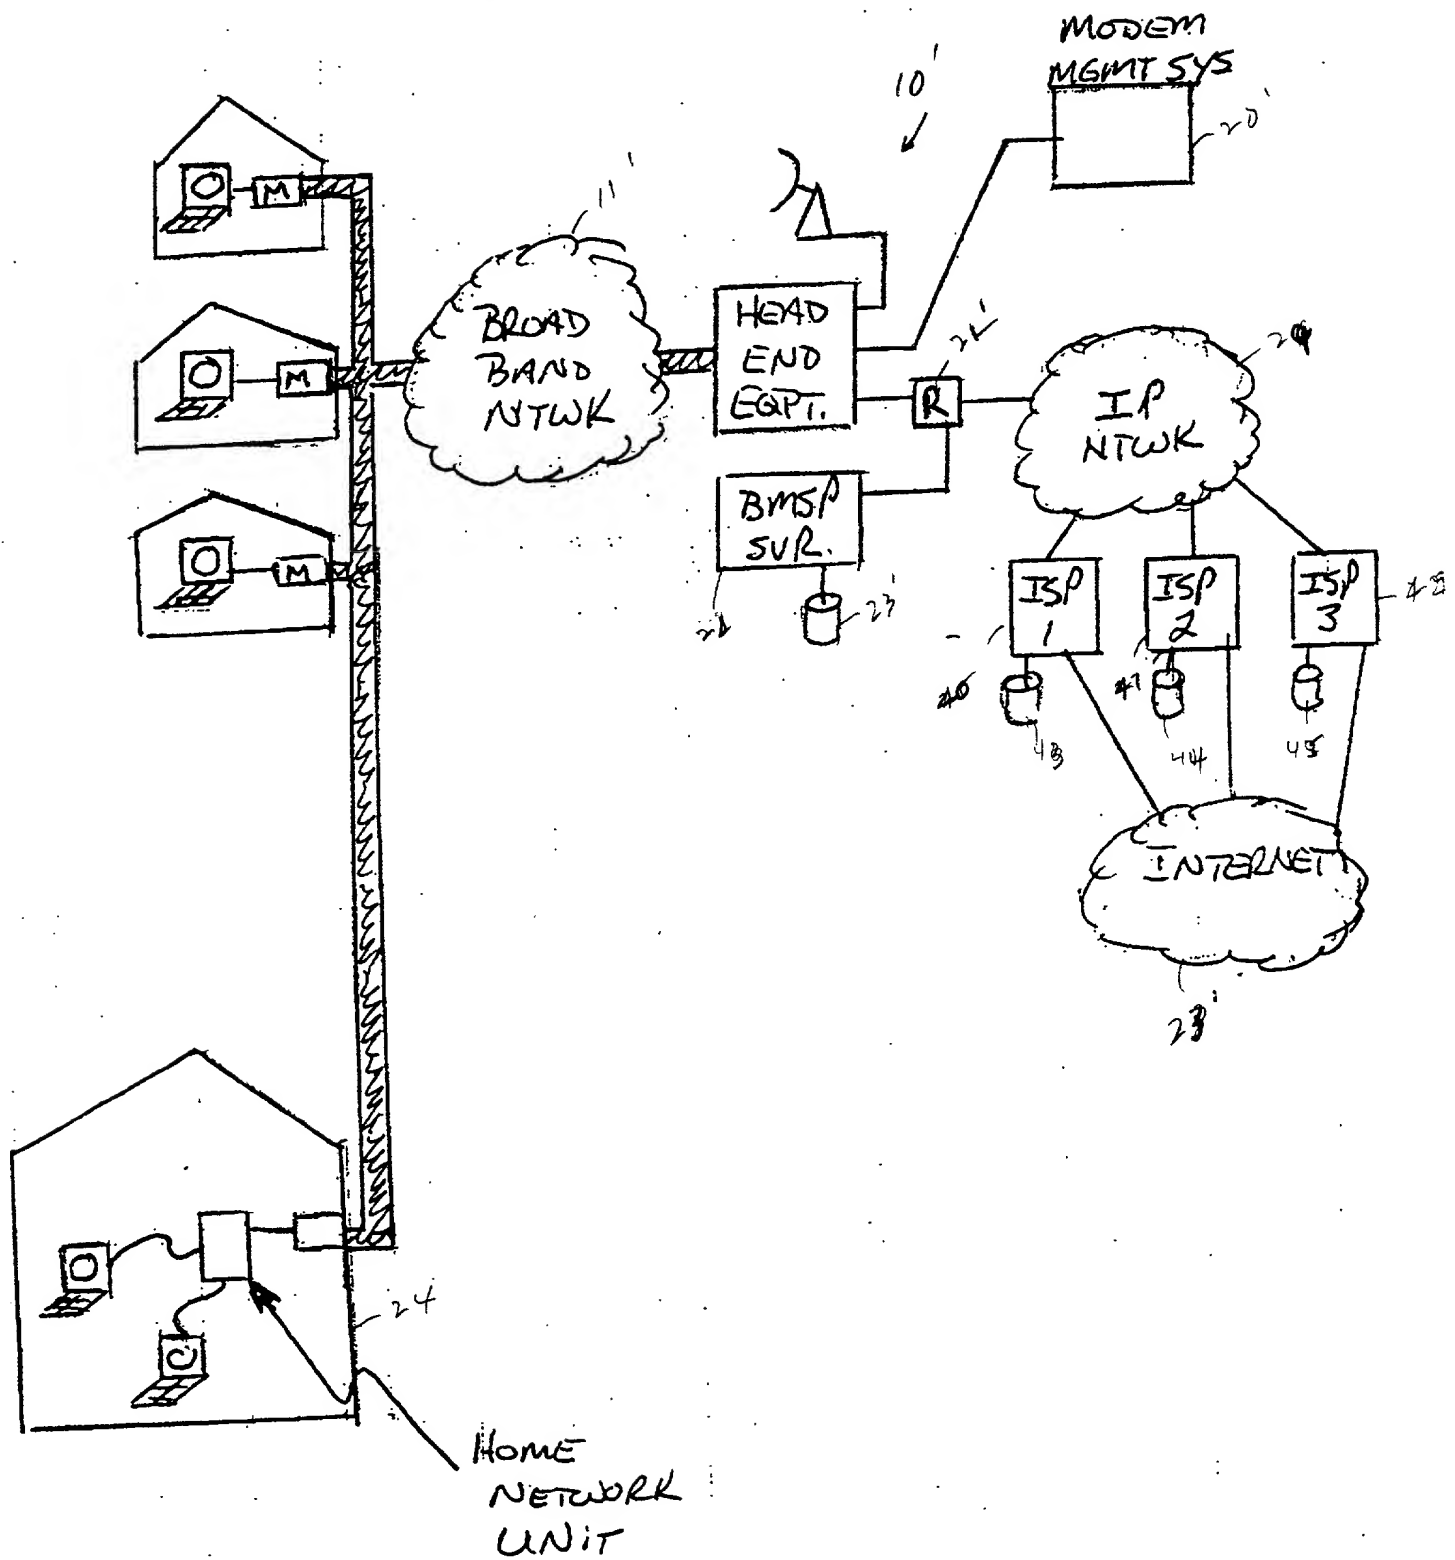 MODEM
MGMT SYS
10'
20'
11'
M
M
M
BROAD
BAND
NTWK
HEAD
END
EQPT.
R
IP
NTWK
BMSP
SVR.
23'
ISP
1
ISP
2
ISP
3
40
43
44
45
INTERNET
24
HOME
NETWORK
UNIT